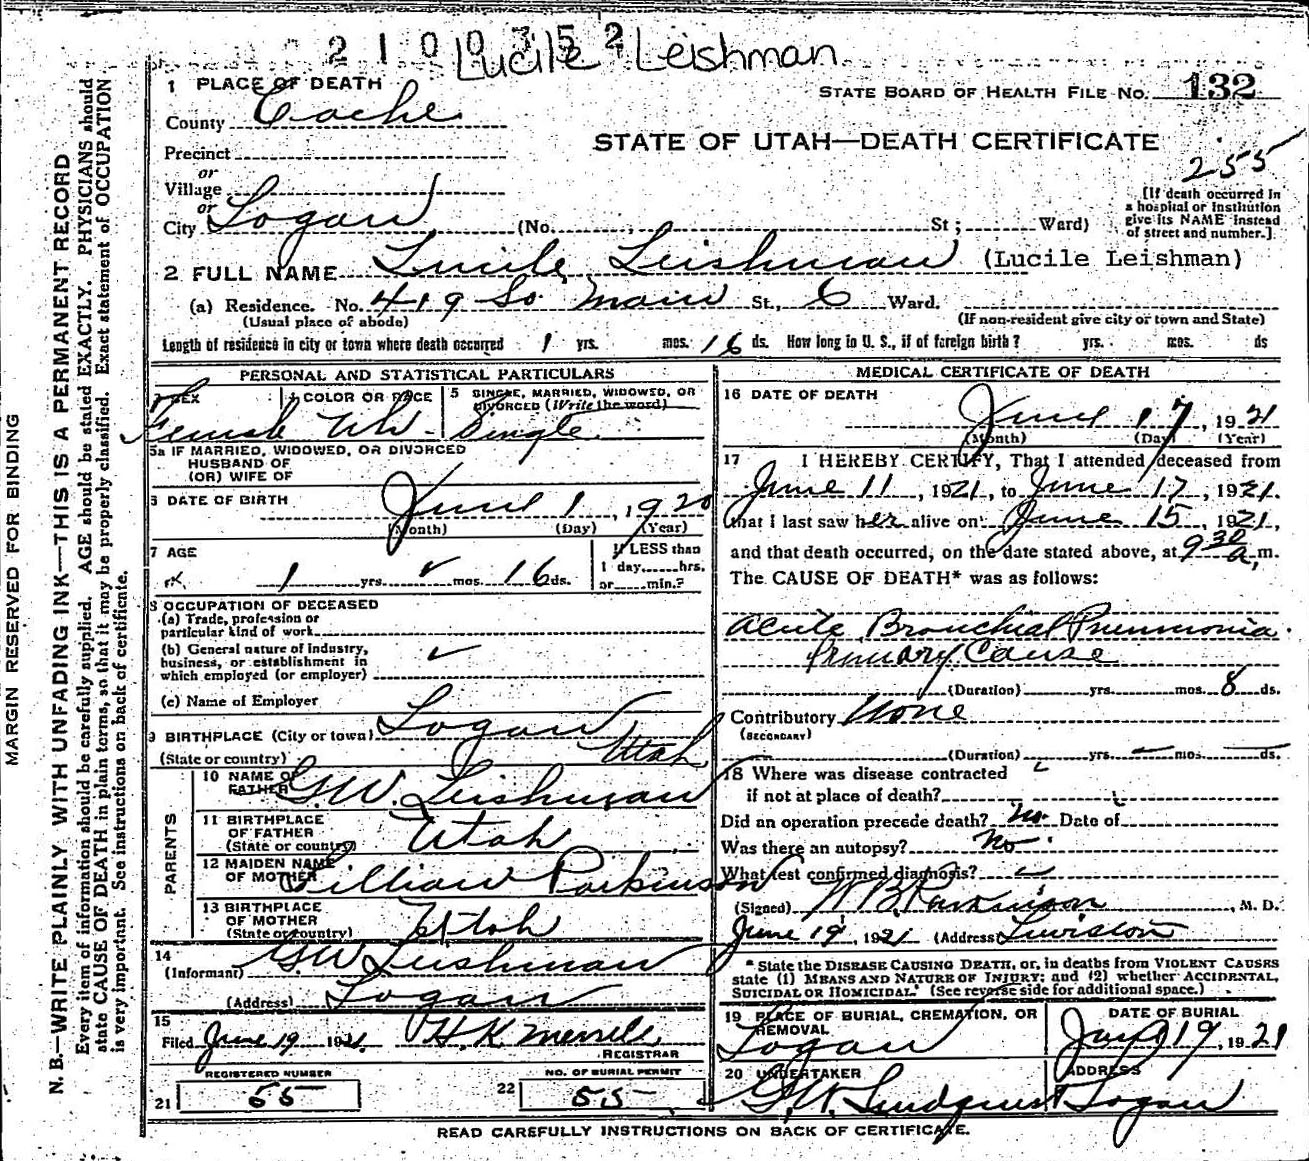 2100352
Lucile Leishman
1 PLACE OF DEATH
County Cache
STATE BOARD OF HEALTH FILE No. 132
STATE OF UTAH—DEATH CERTIFICATE
255
Precinct
or
Village
or
City Logan (No. St; Ward)
[If death occurred in
a hospital or institution
give its NAME instead
of street and number.]
2 FULL NAME Lucile Leishman (Lucile Leishman)
(a) Residence. No. 419 So. Main St., 6 Ward.
(Usual place of abode) (If non-resident give city or town and State)
Length of residence in city or town where death occurred 1 yrs. mos. 16 ds. How long in U. S., if of foreign birth? yrs. mos. ds
PERSONAL AND STATISTICAL PARTICULARS
3 SEX 4 COLOR OR RACE 5 SINGLE, MARRIED, WIDOWED, OR
DIVORCED (Write the word)
Female Wh- Single
5a IF MARRIED, WIDOWED, OR DIVORCED
HUSBAND OF
(OR) WIFE OF
6 DATE OF BIRTH June 1, 1920
(Month) (Day) (Year)
7 AGE If LESS than
1 day......hrs.
1 yrs. ✓ mos. 16 ds. or......min.?
8 OCCUPATION OF DECEASED
(a) Trade, profession or
particular kind of work
(b) General nature of industry, ✓
business, or establishment in
which employed (or employer)
(c) Name of Employer
9 BIRTHPLACE (City or town) Logan
(State or country) Utah
PARENTS
10 NAME OF
FATHER G.W. Leishman
11 BIRTHPLACE
OF FATHER
(State or country) Utah
12 MAIDEN NAME
OF MOTHER Lillian Parkinson
13 BIRTHPLACE
OF MOTHER
(State or country) Utah
14
(Informant) G.W. Leishman
(Address) Logan
15
Filed June 19 1921. H.K. Merrell
REGISTRAR
REGISTERED NUMBER
21 55
NO. OF BURIAL PERMIT
22 55
MEDICAL CERTIFICATE OF DEATH
16 DATE OF DEATH
June 17, 1921
(Month) (Day) (Year)
17 I HEREBY CERTIFY, That I attended deceased from
June 11, 1921, to June 17, 1921.
that I last saw her alive on June 15, 1921,
and that death occurred, on the date stated above, at 9 30 a. m.
The CAUSE OF DEATH* was as follows:
Acute Bronchial Pneumonia.
Primary Cause
(Duration) yrs. mos. 8 ds.
Contributory None
(SECONDARY)
(Duration) yrs. mos. ds.
18 Where was disease contracted
if not at place of death?
Did an operation precede death? No. Date of
Was there an autopsy? No
What test confirmed diagnosis?
(Signed) W B Parkinson, M. D.
June 19, 1921 (Address) Lewiston
* State the DISEASE CAUSING DEATH, or, in deaths from VIOLENT CAUSES
state (1) MEANS AND NATURE OF INJURY; and (2) whether ACCIDENTAL,
SUICIDAL OR HOMICIDAL. (See reverse side for additional space.)
19 PLACE OF BURIAL, CREMATION, OR
REMOVAL
Logan
DATE OF BURIAL
19, 1921
20 UNDERTAKER
G.W. Lindquist
ADDRESS
Logan
READ CAREFULLY INSTRUCTIONS ON BACK OF CERTIFICATE.
MARGIN RESERVED FOR BINDING
N. B.—WRITE PLAINLY WITH UNFADING INK—THIS IS A PERMANENT RECORD
Every item of information should be carefully supplied. AGE should be stated EXACTLY. PHYSICIANS should
state CAUSE OF DEATH in plain terms, so that it may be properly classified. Exact statement of OCCUPATION
is very important. See instructions on back of certificate.